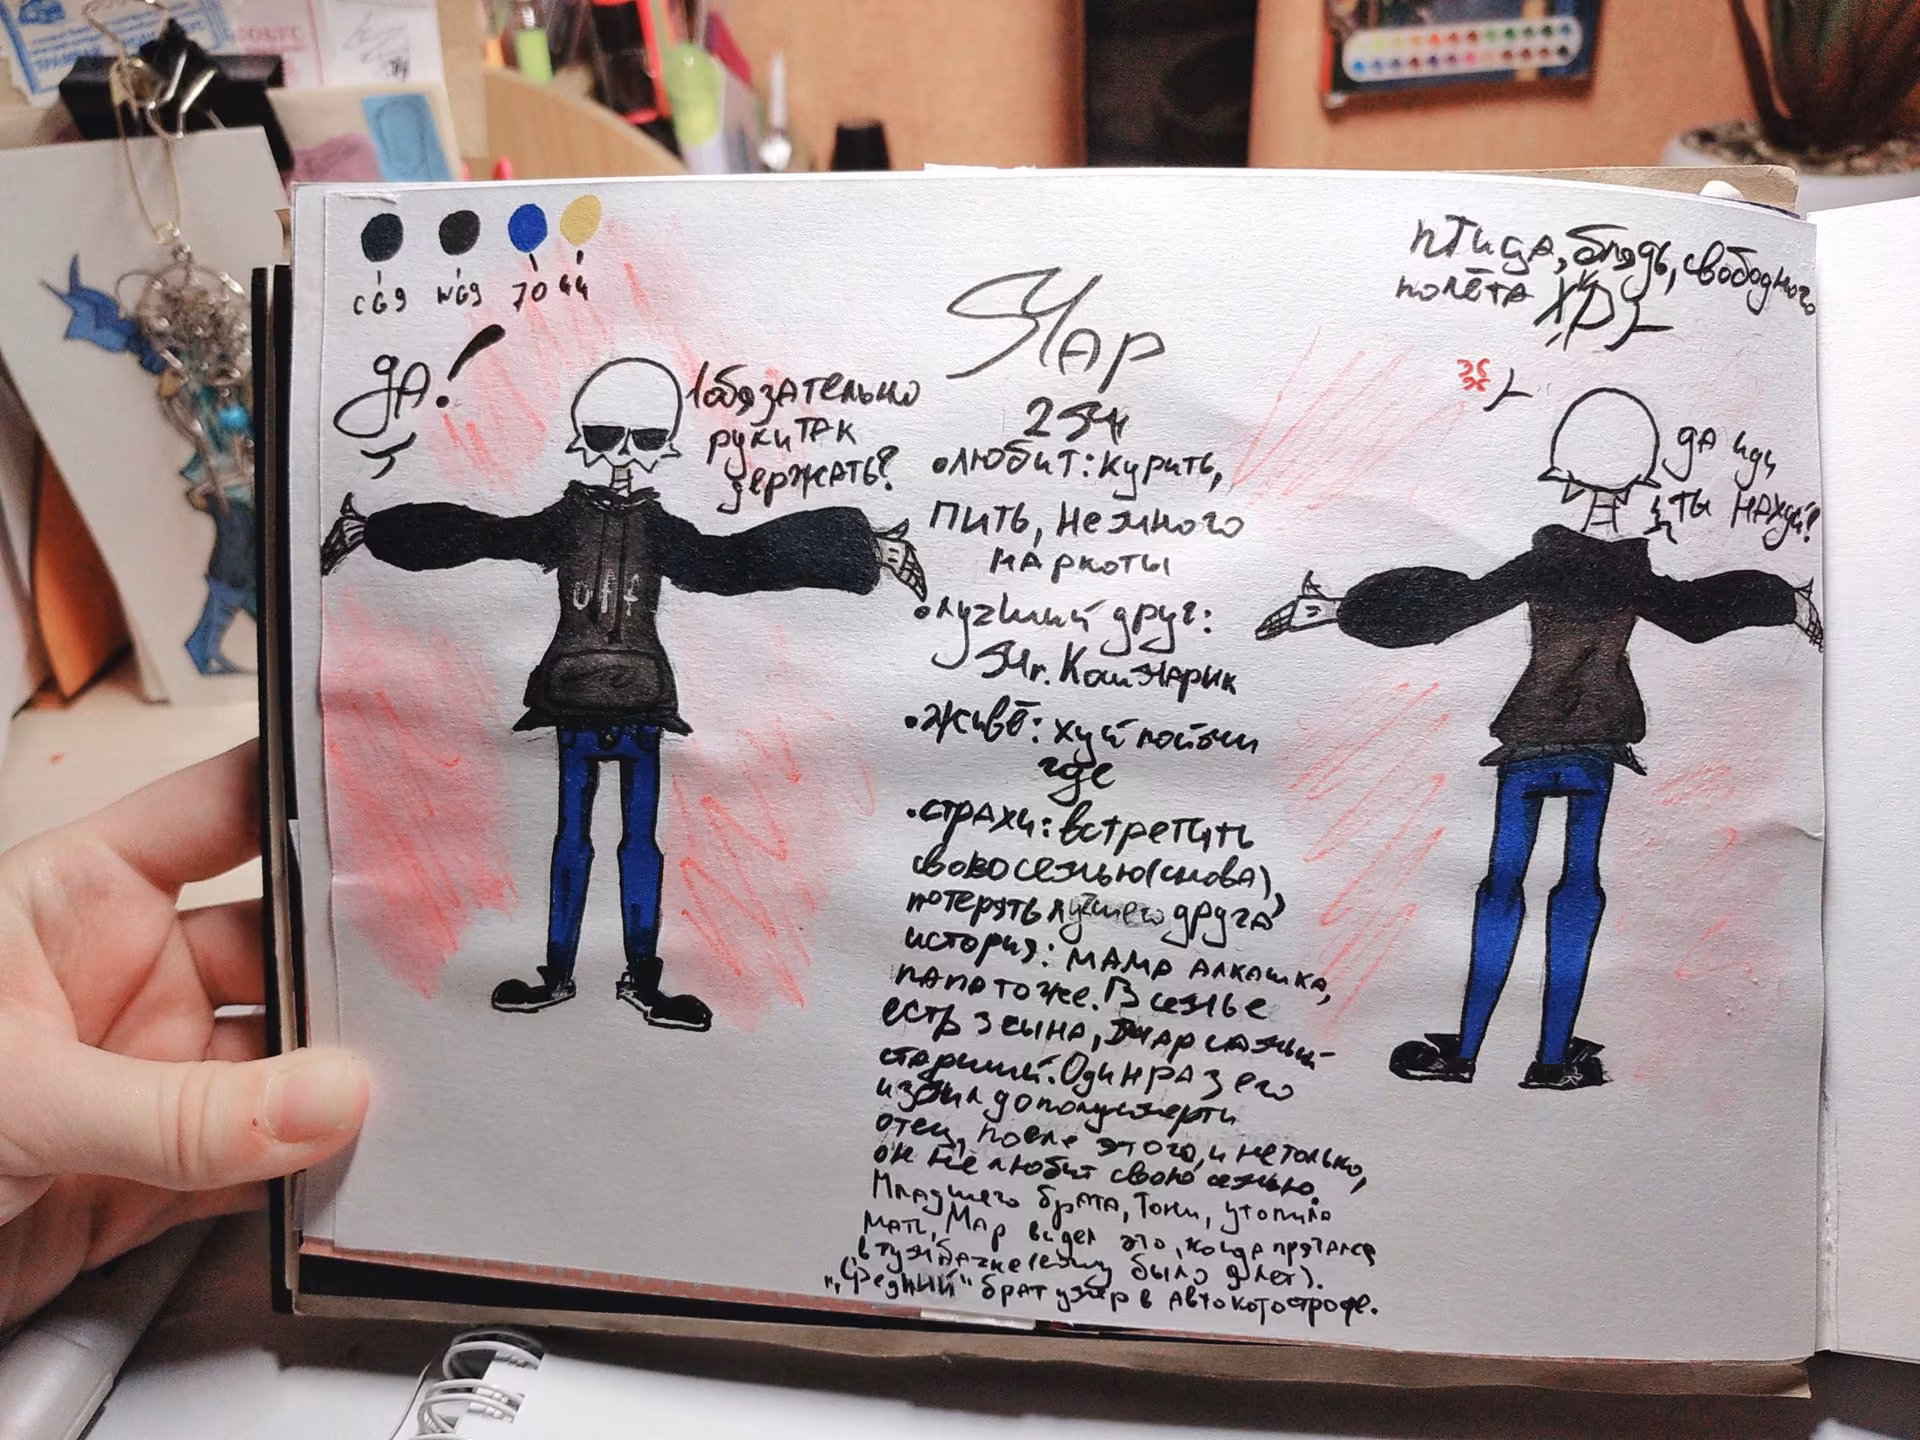 CG9 WG9 70 44
да!
1обязательно
руки так
держать?
uff
Мар
254
• любит: курить,
пить, немного
наркоты
• лучший друг:
Mr. Кошмарик
• живё: хуй пойми
где
• страхи: встретить
свою семью (снова),
потерять лучшего друга
история: мама алкашка,
папа тоже. В семье
есть 3 сына, Мар самый
старший. Один раз его
избил до полусмерти
отец, после этого, и не только,
он не любит свою семью.
Младшего брата, Тони, утопила
мать, Мар видел это, когда прятался
в тумбочке (ему было 9 лет).
"Средний" брат умер в автокотострофе.
птица, блядь, свободного
полёта XD
да иди
ты нахуй!